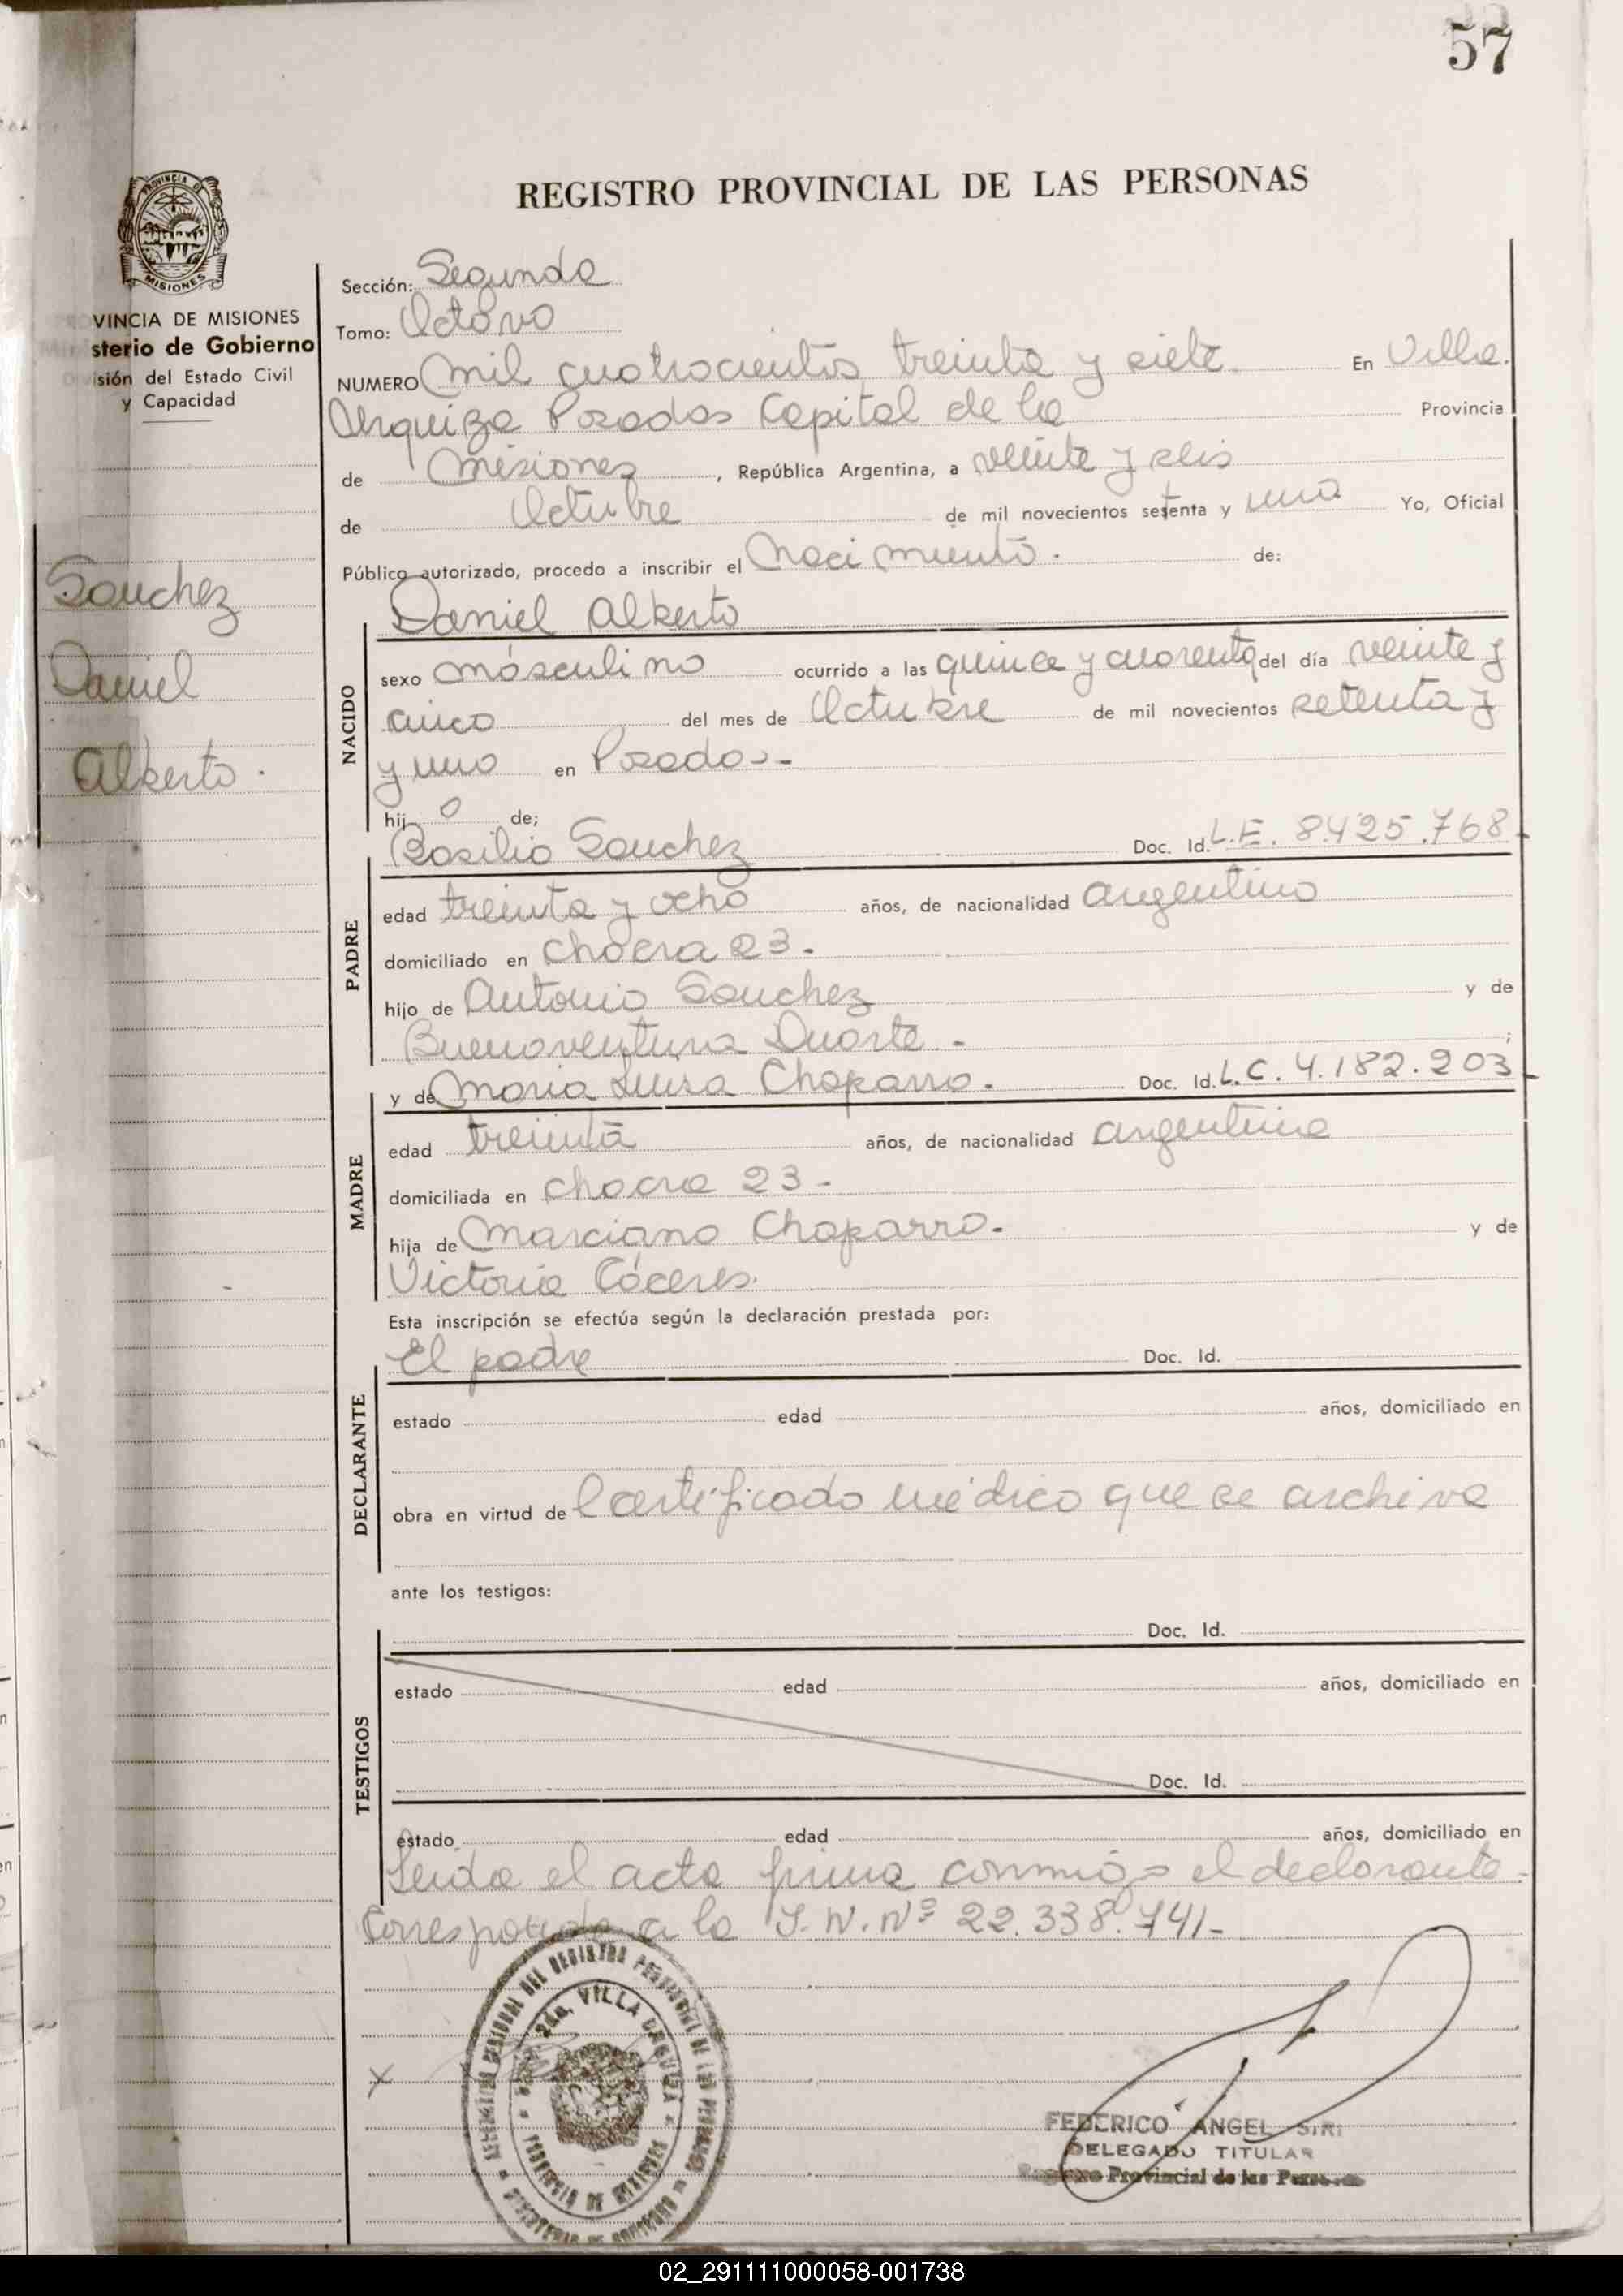 57
REGISTRO PROVINCIAL DE LAS PERSONAS
PROVINCIA DE
MISIONES
VINCIA DE MISIONES
sterio de Gobierno
isión del Estado Civil
y Capacidad
Sanchez
Daniel
Alberto.
Sección: Segunda
Tomo: Octavo
NUMERO Mil cuatrocientos treinta y siete. En Villa.
Urquiza Posadas Capital de la Provincia
de Misiones, República Argentina, a veinte y seis
de Octubre de mil novecientos setenta y uno Yo, Oficial
Público autorizado, procedo a inscribir el Nacimiento. de:
Daniel Alberto
NACIDO
sexo másculino ocurrido a las quince y cuarenta del día veinte y
cinco del mes de Octubre de mil novecientos setenta y
y uno en Posadas.-
hij o de;
Basilio Sanchez Doc. Id. L.E. 8.425.768
PADRE
edad treinta y ocho años, de nacionalidad argentino
domiciliado en Chacra 23.-
hijo de Antonio Sanchez y de
Buenaventura Duarte.- ;
y de Maria Luisa Chaparro. Doc. Id. L.C. 4.182.203
MADRE
edad treinta años, de nacionalidad argentina
domiciliada en chacra 23.-
hija de Marciano Chaparro.- y de
Victoria Cáceres.
Esta inscripción se efectúa según la declaración prestada por:
El padre Doc. Id.
DECLARANTE
estado edad años, domiciliado en
obra en virtud de Certificado médico que se archiva
ante los testigos:
Doc. Id.
TESTIGOS
estado edad años, domiciliado en
Doc. Id.
estado edad años, domiciliado en
Leida el acta firma conmigo el declarante.
Corresponde a la I.N.Nº 22.338.741-
VILLA URQUIZA
PROVINCIA DE MISIONES
FEDERICO ANGEL SIRI
DELEGADO TITULAR
Provincial de las Personas
02_291111000058-001738